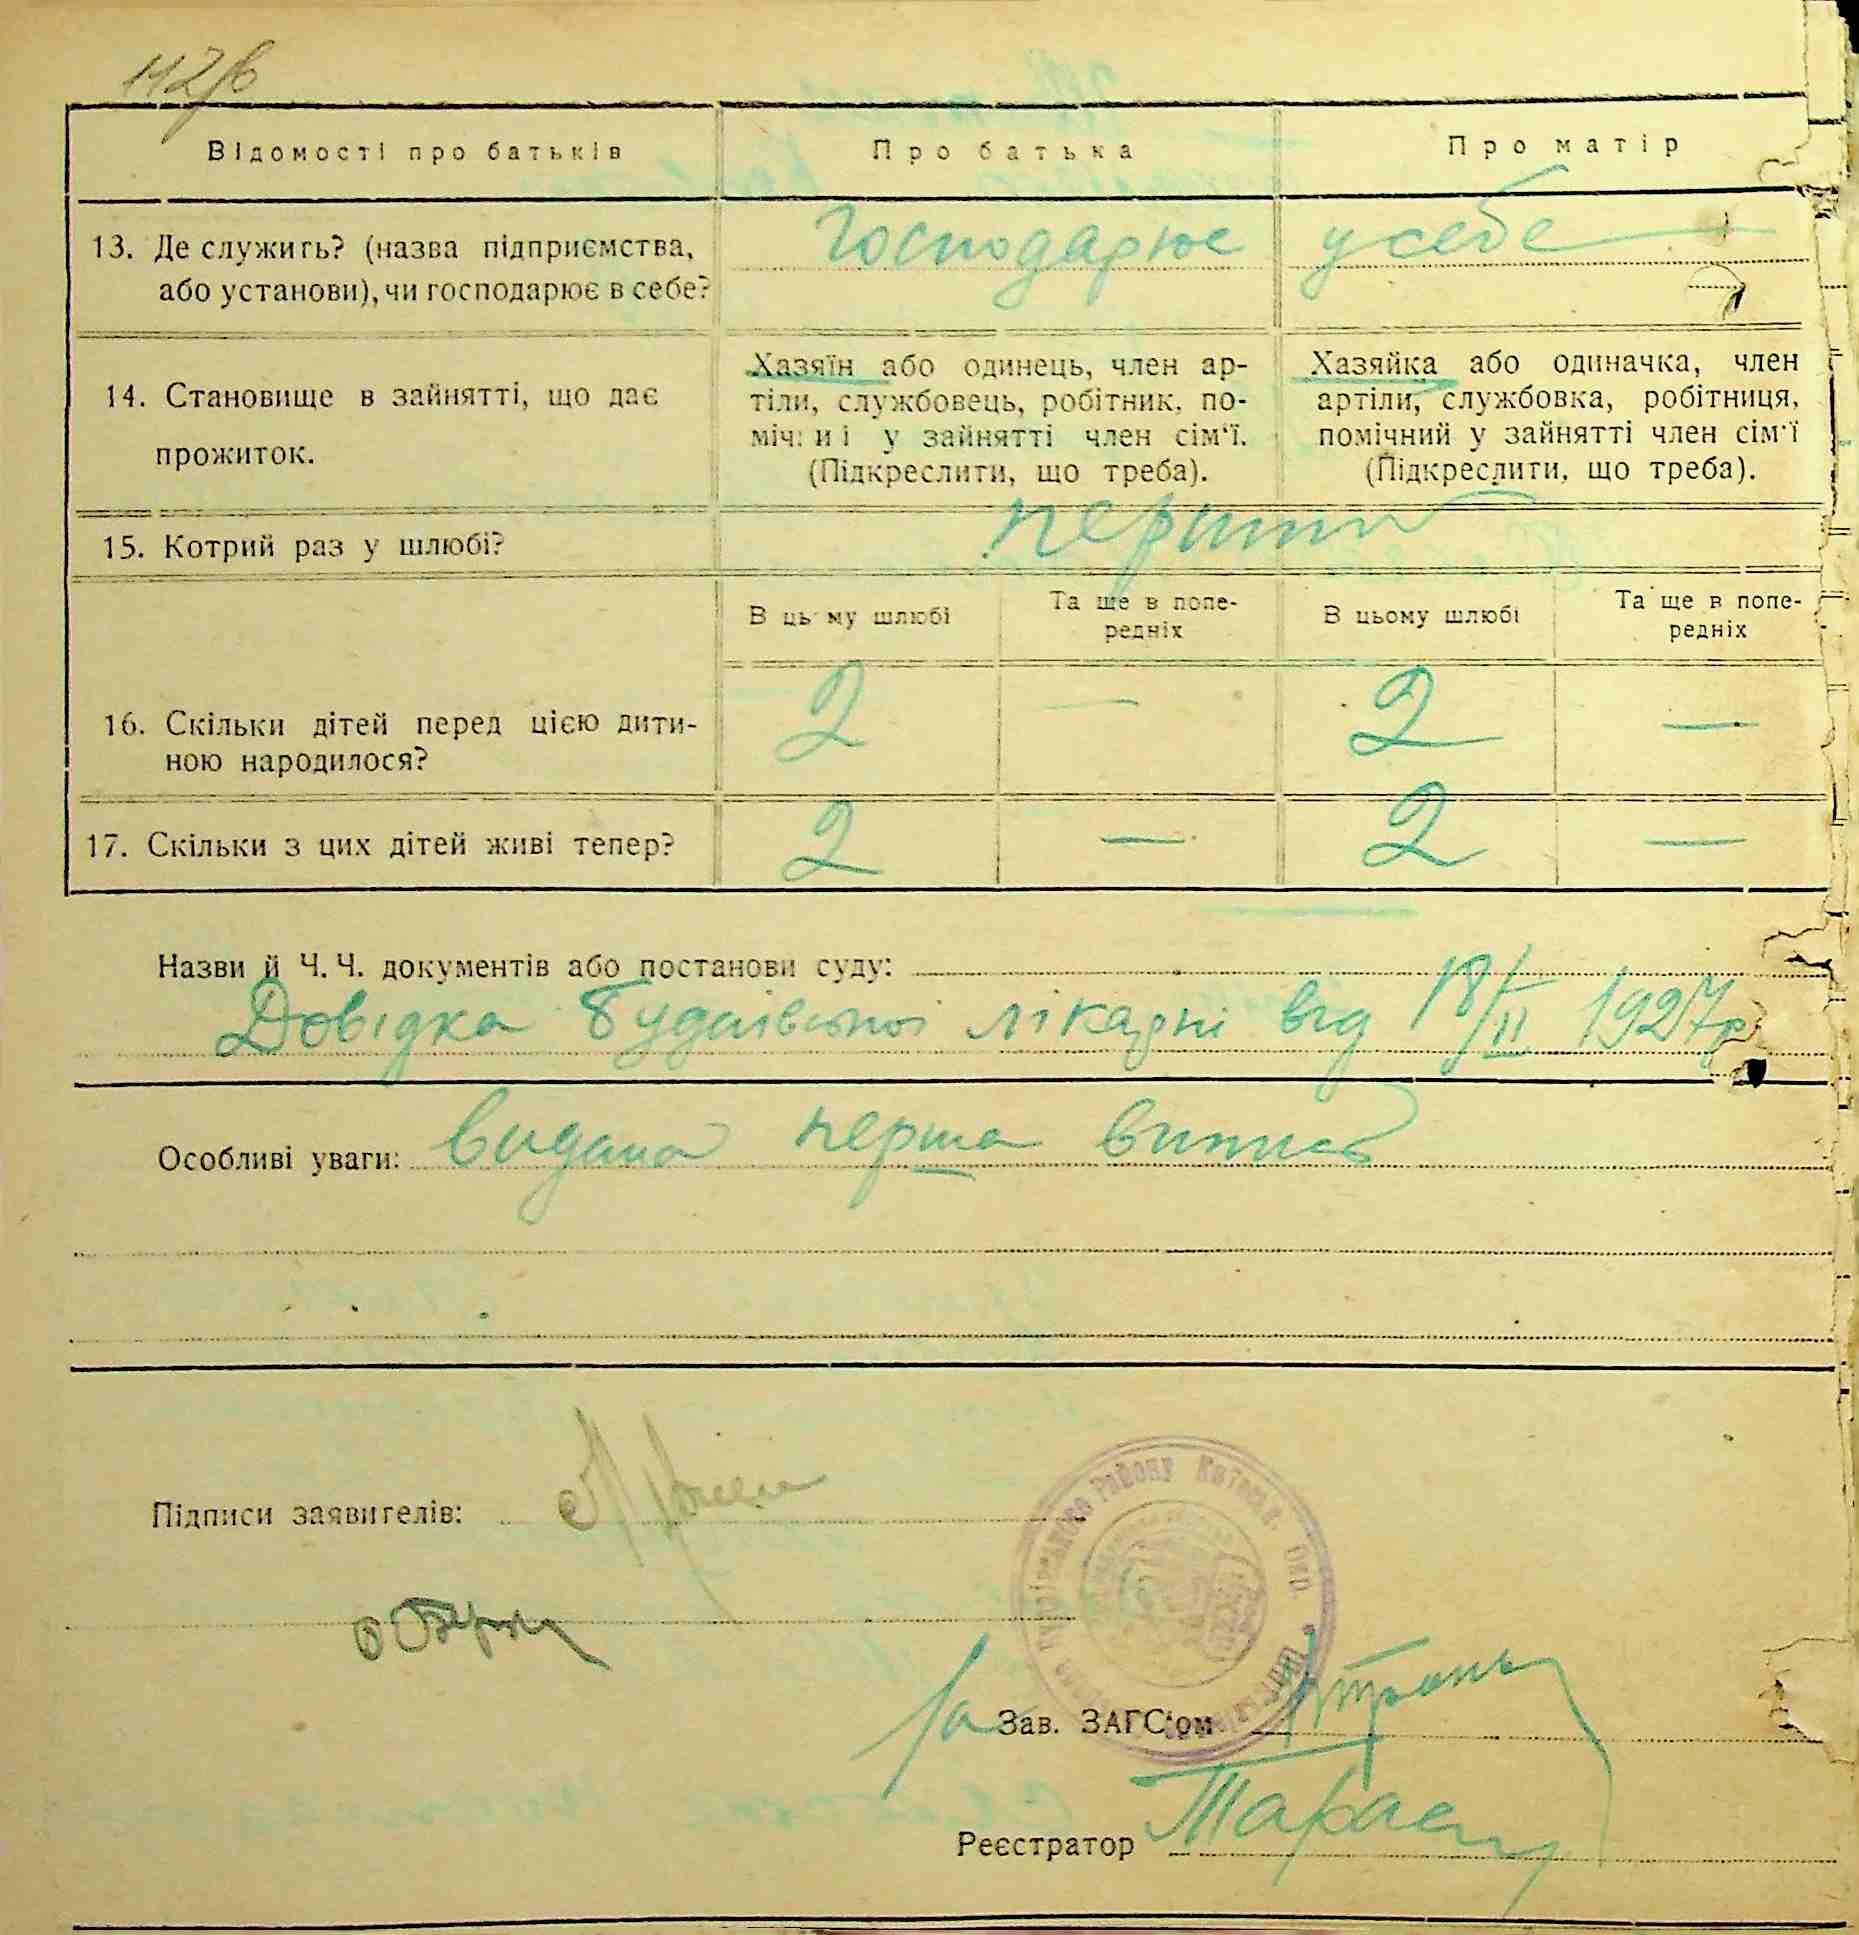 112/в
Відомості про батьків Про батька Про матір
13. Де служить? (назва підприємства, Господарює у себе
або установи), чи господарює в себе?
Хазяїн або одинець, член ар- Хазяйка або одиначка, член
14. Становище в зайнятті, що дає тіли, службовець, робітник, по- артіли, службовка, робітниця,
міч и і у зайнятті член сім'ї. помічний у зайнятті член сім'ї
прожиток. (Підкреслити, що треба). (Підкреслити, що треба).
15. Котрий раз у шлюбі? перший
В ць му шлюбі Та ще в попе- В цьому шлюбі Та ще в попе-
редніх редніх
16. Скільки дітей перед цією дити- 2 — 2 —
ною народилося?
17. Скільки з цих дітей живі тепер? 2 — 2 —
Назви й Ч. Ч. документів або постанови суду:
Довідка Будаївської лікарні від 18/II 1927р
Особливі уваги: видана перша випись
Підписи заявителів:
Району Київськ. Окр.
за Зав. ЗАГС'ом
Реєстратор